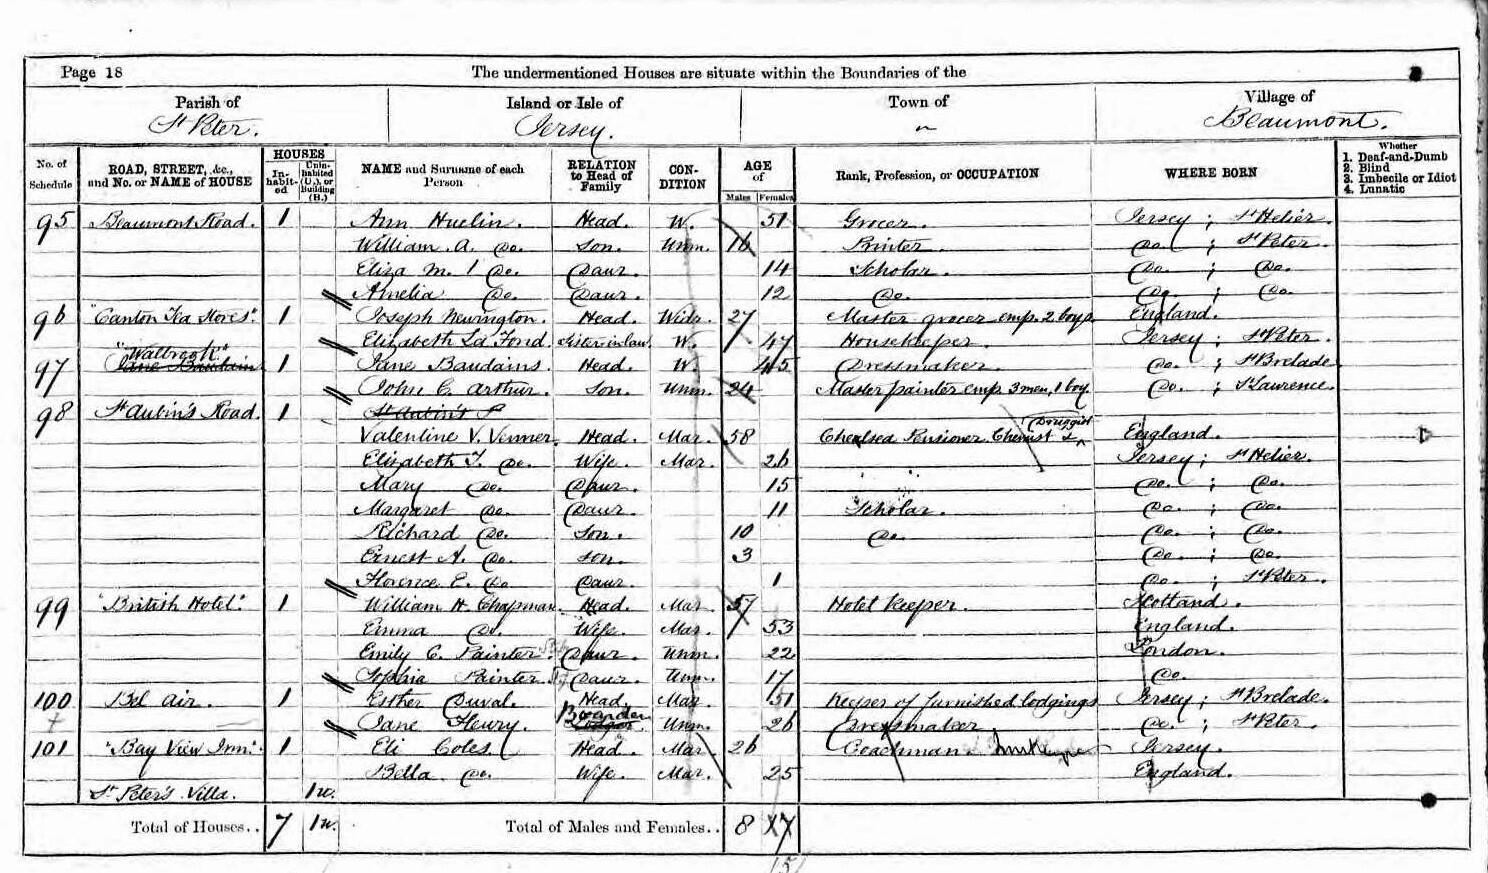 Page 18 The undermentioned Houses are situate within the Boundaries of the
Parish of Island or Isle of Town of Village of
St Peter. Jersey. Beaumont.
No. of Schedule ROAD, STREET, &c., and No. or NAME of HOUSE HOUSES In-habit-ed Unin-habited (U.), or Building (B.) NAME and Surname of each Person RELATION to Head of Family CON-DITION AGE of Males Females Rank, Profession, or OCCUPATION WHERE BORN Whether 1. Deaf-and-Dumb 2. Blind 3. Imbecile or Idiot 4. Lunatic
95 Beaumont Road. 1 Ann Huelin. Head. W. 51 Grocer. Jersey; St Helier.
William. A. Do. Son. Unm. 16 Printer. Do. ; St Peter.
Eliza M. Do. Daur. 14 Scholar. Do. ; Do.
Amelia Do. Daur. 12 Do. Do. ; Do.
96 "Canton Tea Stores". 1 Joseph Newington. Head. Widr. 27 Master grocer emp. 2 boys. England.
Elizabeth La Fond. Sister in law. W. 47 Housekeeper. Jersey; St Peter.
"Walbrook"
97 Jane Baudain 1 Jane Baudains. Head. W. 45 Dressmaker. Do. ; St Brelade
John C. Arthur. Son. Unm. 24 Master painter emp. 3 men, 1 boy. Do. ; St Lawrence.
98 St Aubin's Road. 1 St Aubin's R
Druggist
Valentine V. Venner. Head. Mar. 58 Chealsea Pensioner. Chemist & England.
Elizabeth T. Do. Wife. Mar. 26 Jersey; St Helier.
Mary Do. Daur. 15 Do. ; Do.
Margaret Do. Daur. 11 Scholar. Do. ; Do.
Richard Do. Son. 10 Do. Do. ; Do.
Ernest A. Do. Son. 3 Do. ; Do.
Florence E. Do Daur. 1 Do. ; St Peter.
99 "British Hotel". 1 William H. Chapman. Head. Mar. 57 Hotel Keeper. Scotland.
Emma Do. Wife. Mar. 53 England.
Emily C. Painter. Daur. Unm. 22 London.
Sophia Painter. Daur. Unm. 17 Do.
100 Bel Air. 1 Esther Duval. Head. Mar. 51 Keeper of furnished lodgings Jersey; St Brelade.
Boarder
Jane Fleury. Lodger Unm. 26 Dressmaker. Do. ; St Peter.
101 "Bay View Inn." 1 Eli Coles. Head. Mar. 26 Coachman. Innkeeper Jersey.
Bella Do. Wife. Mar. 25 England.
St Peter's Villa. 1 u.
Total of Houses.. 7 1 u. Total of Males and Females.. 8 17
15